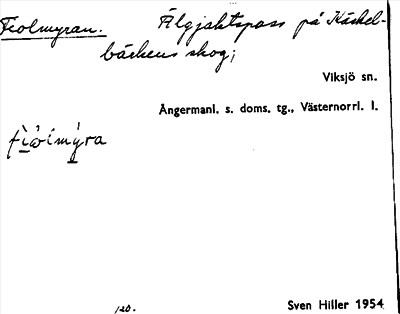 Fiolmyran. Älgjaktspass på Käskel-
bäckens skog;
Viksjö sn.
Ångermanl. s. doms. tg., Västernorrl. l.
120.
Sven Hiller 1954